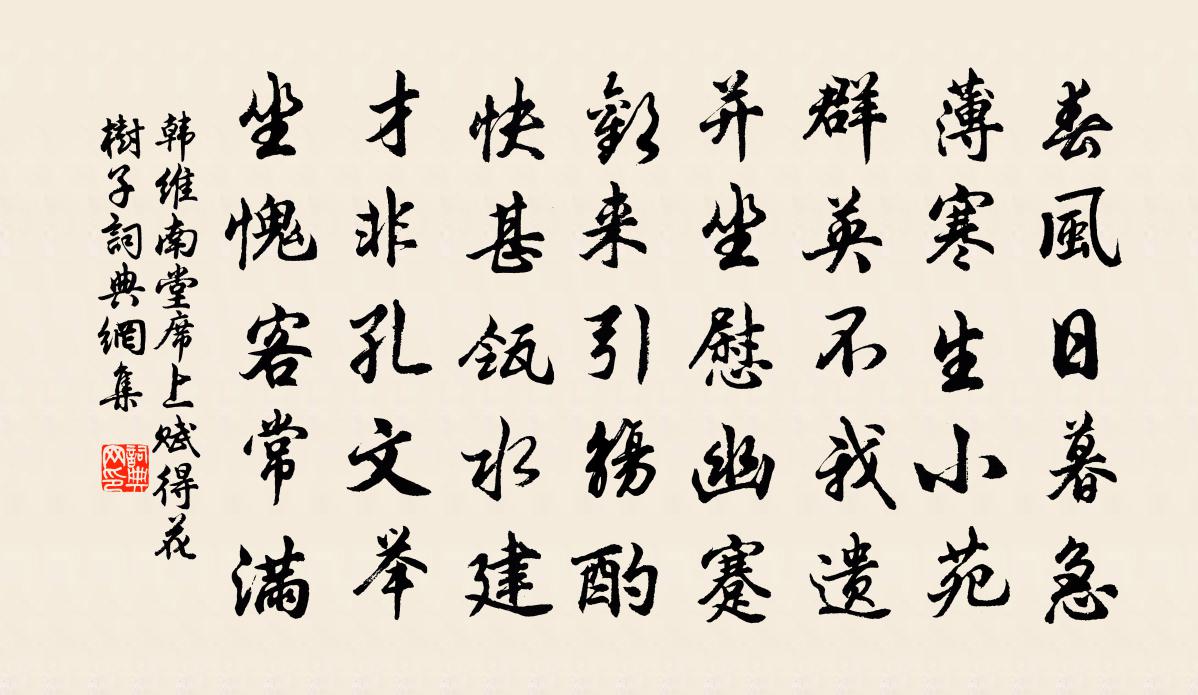 春風日暮急
薄寒生小苑
群英不我遗
并坐慰幽蹇
歡来引觴酌
快甚瓴水建
才非孔文举
坐愧客常满
韩維南堂席上赋得花
樹子詞典網集
詞典
网印